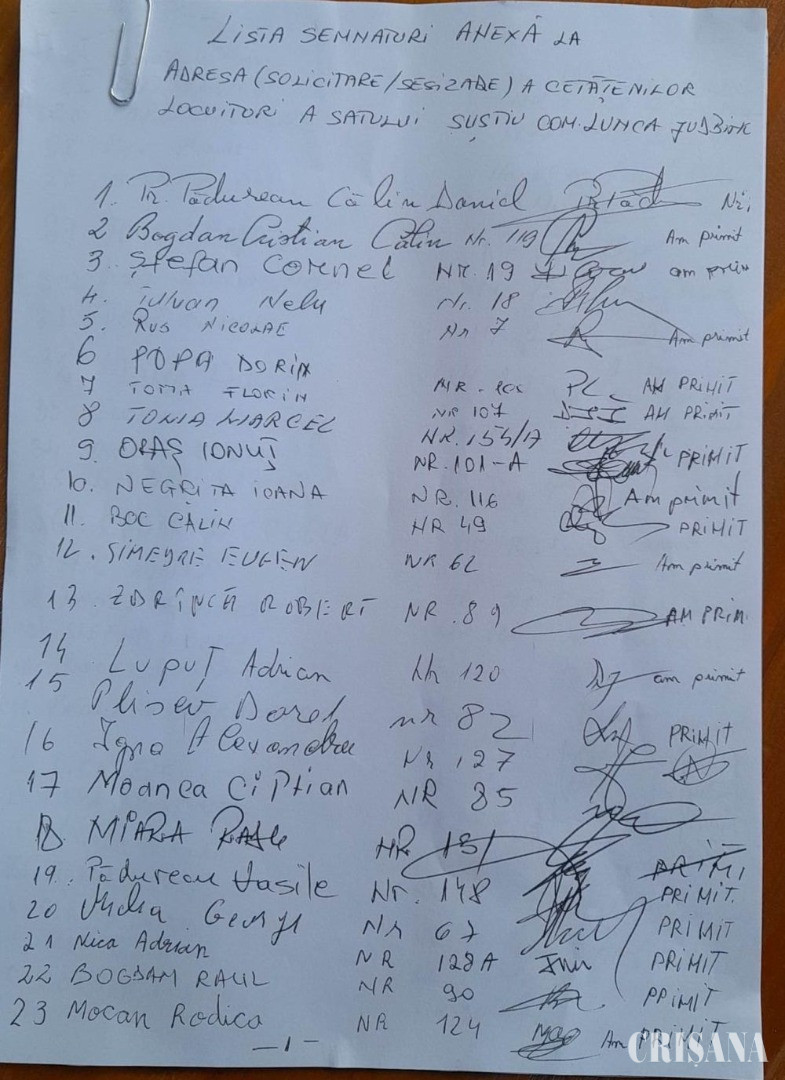 LISTA SEMNATURI ANEXĂ LA
ADRESA (SOLICITARE/SESIZARE) A CETĂȚENILOR
LOCUITORI A SATULUI ȘUȘTIU COM. LUNCA JUD BIHOR
1. Pr. Pădurean Călin Daniel Nr.
2 Bogdan Cristian Călin Nr. 119 Am primit
3 Ștefan Cornel NR. 19 am prim
4. Nelu Nr. 18
5. Rus Nicolae Nr 7 Am primit
6 POPA DORIN
7 TOMA FLORIN AM PRIMIT
8 TOMA MARCEL NR 107 AM PRIMIT
9. IONUȚ NR. 154/A
NR. 101-A PRIMIT
10. NEGRIȚA IOANA NR. 116 Am primit
11. BOC CĂLIN NR 49 PRIMIT
12. EUGEN NR 62 Am primit
13. ROBERT NR. 89 AM PRIM.
14 Lupuț Adrian 120 am primit
15 Dorel nr 82 PRIMIT
16 Nr 127
17 Moanea NR 85
18 NR 151
19. Pădurean Vasile Nr. 148 PRIMIT.
20 Nr 67 PRIMIT
21 Nica Adrian NR 128A PRIMIT
22 BOGDAN RAUL NR 90 PRIMIT
23 Mocan Rodica NR 124 Am PRIMIT
— 1 —
CRIȘANA